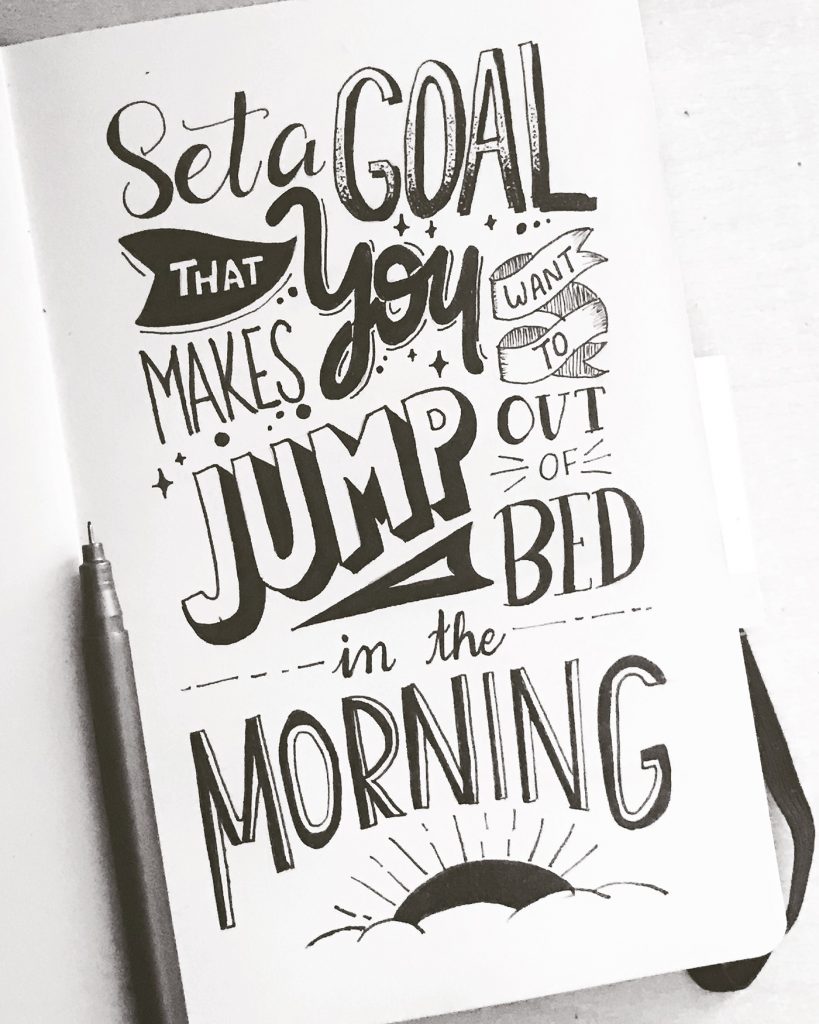 Set a GOAL
THAT
MAKES
You
WANT
TO
JUMP
OUT
OF
BED
in the
MORNING